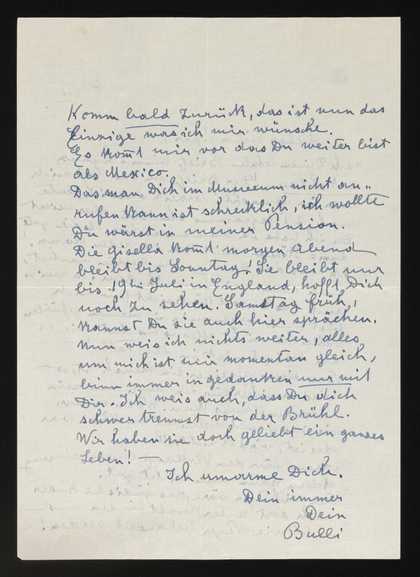 Komm bald zurück, das ist nun das
Einzige was ich mir wünsche.
Es kom̅t mir vor das Du weiter bist
als Mexico.
Das man Dich im Museum nicht an„
rufen kann ist schrecklich, ich wollte
Du wärst in meiner Pension.
Die Gisella kom̅t morgen Abend
bleibt bis Sonntag! Sie bleibt nur
bis 19ten Juli in England, hofft Dich
noch zu sehen. Samstag früh,
kannst Du sie auch hier sprächen.
Nun weis ich nichts weiter, alles
um mich ist mir momentan gleich,
binn immer in gedanken nur mit
Dir. Ich weis auch, dass Du Dich
schwer trennst von der Brühl.
Wir haben sie doch geliebt ein ganses
Leben! —
Ich umarme Dich.
Dein immer
Dein
Bulli